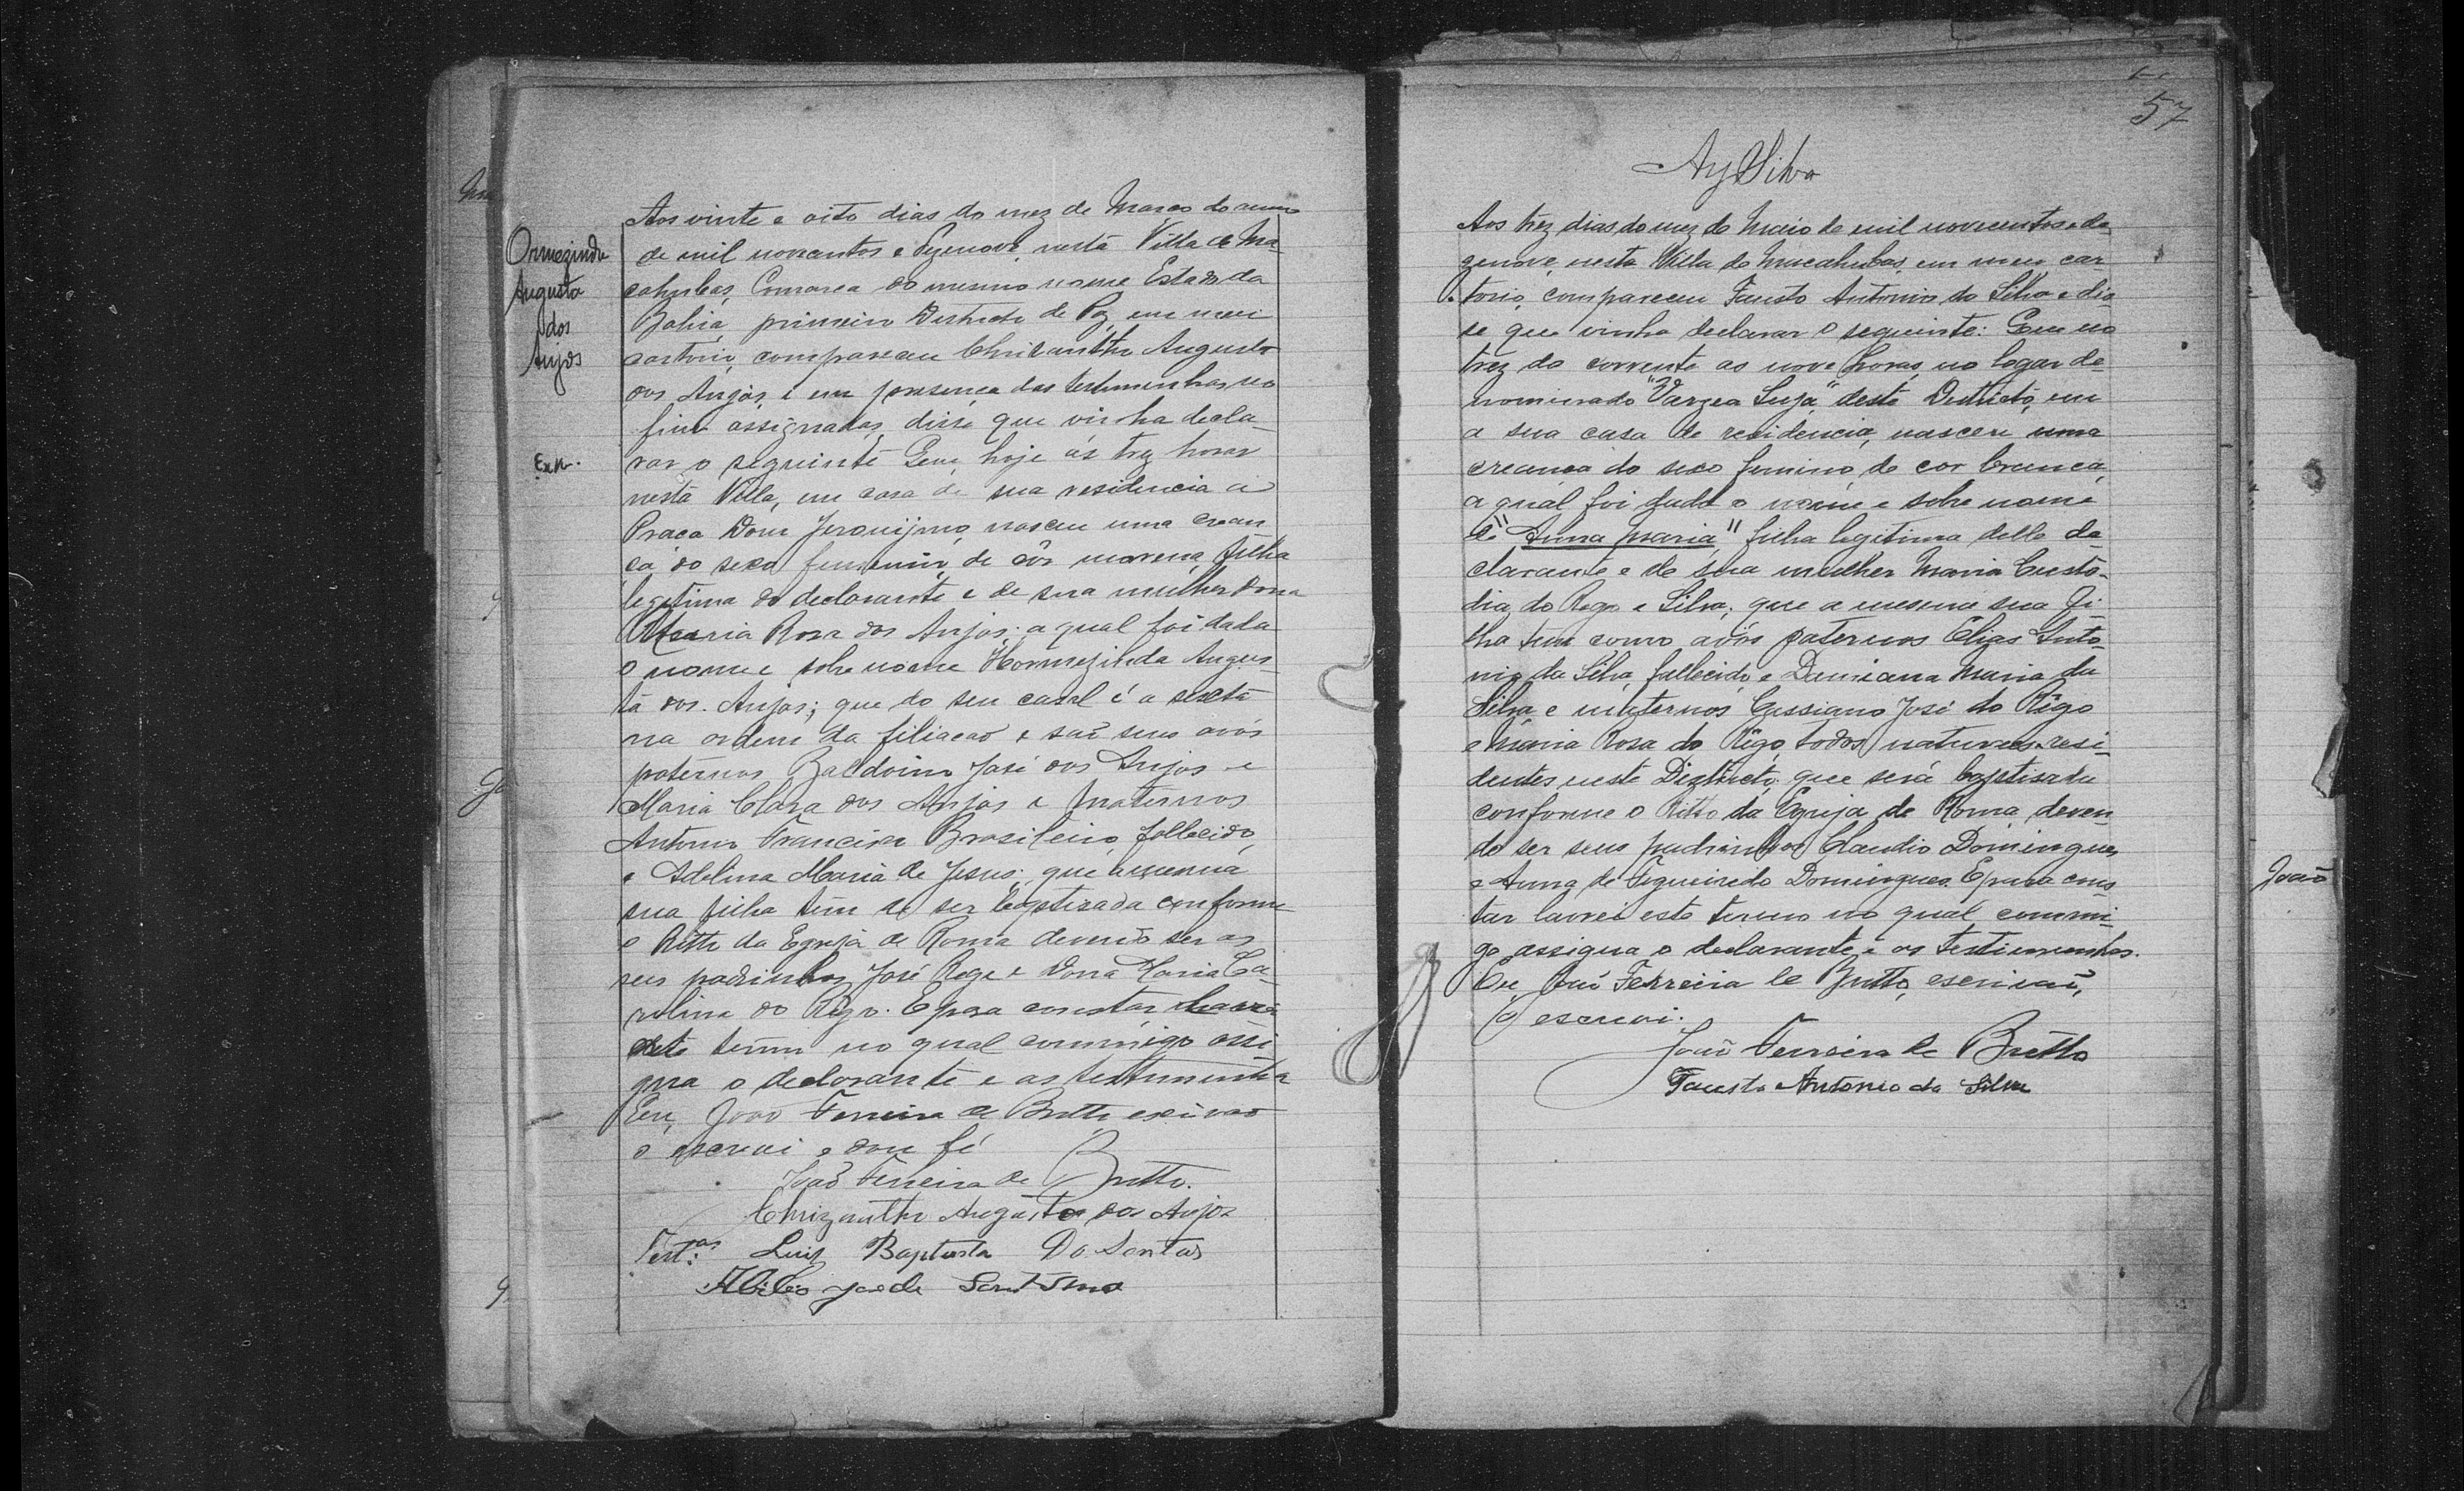 Ormezinda
Augusta
dos
Anjos
Exn.
Aos vinte e oito dias do mez de Março do anno
de mil novecentos e dezenove, nesta Villa de Ma-
cahubas, Comarca do mesmo nome Estado da
Bahia, primeiro Districto de Paz em meu
cartorio, compareceu Chrisantho Augusto
dos Anjos, e em presença das testemunhas no
fim assignadas, disse que vinha decla-
rar o seguinte Que, hoje ás trez horas
nesta Villa, em casa de sua residencia á
Praça Dom Jeronijmo, nasceu uma crean
ça do sexo feminino, de côr morena, filha
legitima do declarante e de sua mulher Dona
Maria Rosa dos Anjos; a qual foi dada
o nome e sobre nome Hormezinda Augus-
ta dos Anjos; que do seu casal é a sexta
na ordem da filiação e são seus avós
paternos Baldoino José dos Anjos e
Maria Clara dos Anjos e maternos
Antonio Francisco Brasileiro, fallecido,
e Adelina Maria de Jesus; que a mesma
sua filha tem de ser baptisada conforme
o Ritto da Egreja de Roma deverão ser os
seus padrinhos José Rego e Dona Maria Ca-
rolina do Rego. E para constar lavrei
este termo no qual commigo assi
gna o declarante e as testemunhas
Eu, João Ferreira de Britto escrivão
o escrevi e dou fé
João Ferreira de Britto.
Chrizantho Augusto dos Anjos
Test.as Luiz Baptista Do Santos
Abilio José de Sant Anna
57
Ay Silva
Aos trez dias do mez de Maio de mil novecentos e de-
zenove, nesta Villa de Macahubas, em meu car-
torio, compareceu Fausto Antonio da Silva e dis
se que vinha declarar o seguinte: Que no
trez do corrente as nove horas, no logar de-
nominado "Vargea Suja", deste Destricto, em
a sua casa de residencia, nasceu uma
creança do sexo femino, de cor branca,
a qual foi dado o nome e sobre nome
de "Anna Maria" filha legitima delle de-
clarante e de sua mulher Maria Custo-
dia do Rego e Silva; que a mesma sua fi-
lha tem como avós paternos Elias Anto-
nio da Silva, fallecido, e Damiana Maria da
Silva, e maternos Cassiano José do Rêgo
e Maria Rosa do Rêgo, todos naturaes e resi-
dentes neste Districto; que será baptisada
conforme o Ritto da Egreja de Roma, deven-
do ser seus padrinhos Claudio Domingues
e Anna de Figueiredo Domingues. E para cons
tar lavrei este termo no qual commi-
go assigna o declarante e as testemunhas.
Eu João Ferreira de Britto, escrivão,
o escrevi.
João Ferreira de Britto
Fausto Antonio da Silva
João